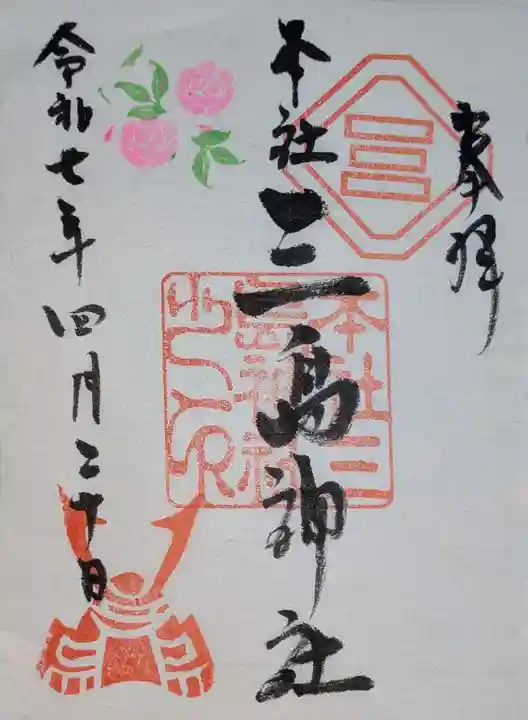 奉拝
三
本社三島神社
本社三島神社之印
令和七年四月二十日